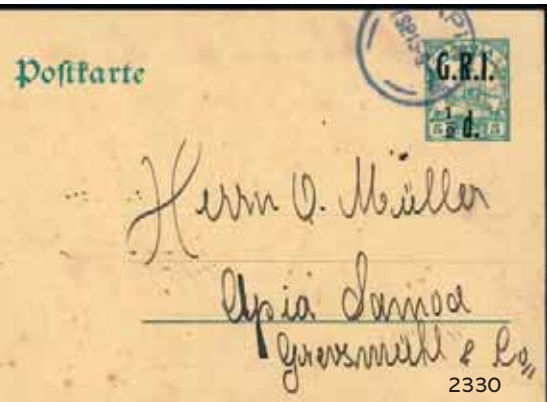 Postkarte
G.R.I.
½ d.
5 5
Herrn O. Müller
Apia Samoa
Grevsmühl & Co,,
2330